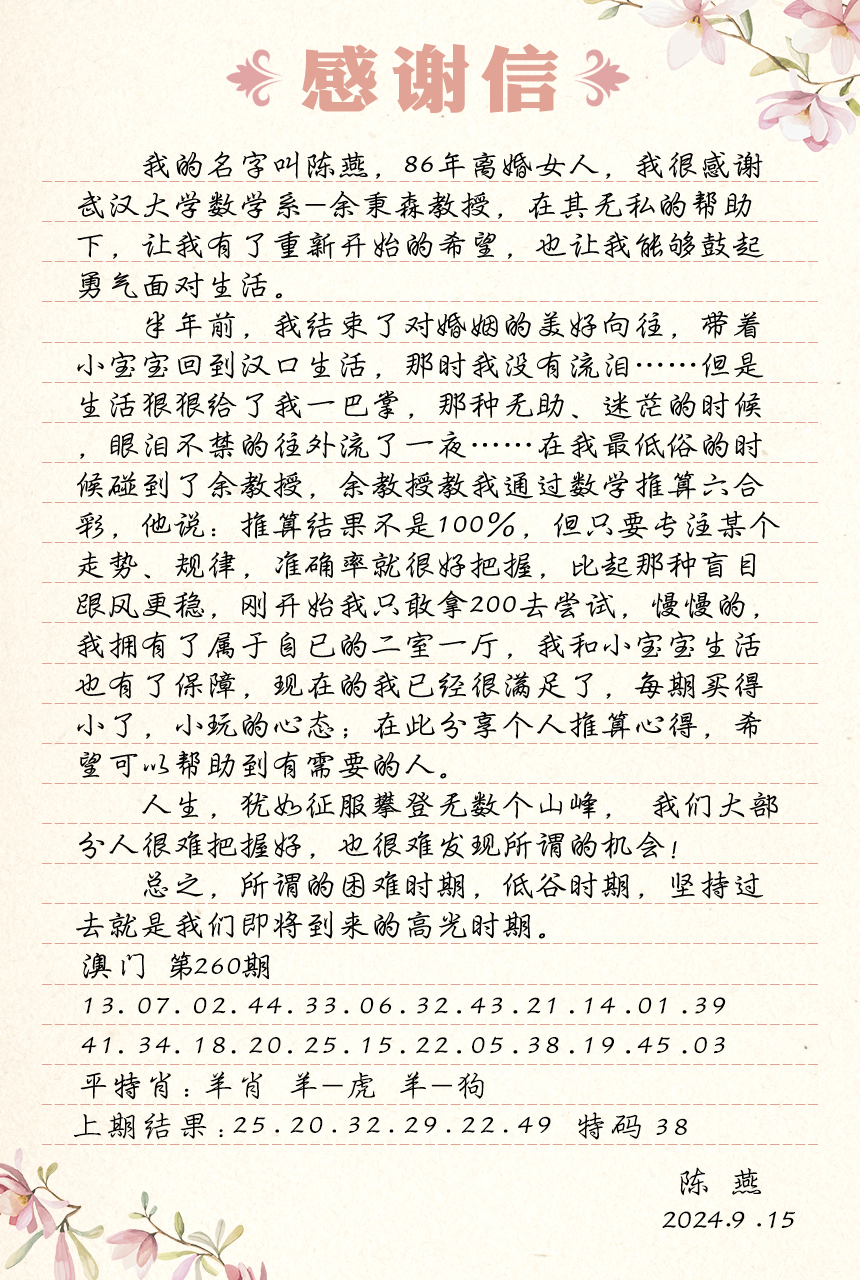 感谢信
我的名字叫陈燕，86年离婚女人，我很感谢
武汉大学数学系—余秉森教授，在其无私的帮助
下，让我有了重新开始的希望，也让我能够鼓起
勇气面对生活。
半年前，我结束了对婚姻的美好向往，带着
小宝宝回到汉口生活，那时我没有流泪……但是
生活狠狠给了我一巴掌，那种无助、迷茫的时候
，眼泪不禁的往外流了一夜……在我最低俗的时
候碰到了余教授，余教授教我通过数学推算六合
彩，他说：推算结果不是100%，但只要专注某个
走势、规律，准确率就很好把握，比起那种盲目
跟风更稳，刚开始我只敢拿200去尝试，慢慢的，
我拥有了属于自已的二室一厅，我和小宝宝生活
也有了保障，现在的我已经很满足了，每期买得
小了，小玩的心态；在此分享个人推算心得，希
望可以帮助到有需要的人。
人生，犹如征服攀登无数个山峰， 我们大部
分人很难把握好，也很难发现所谓的机会！
总之，所谓的困难时期，低谷时期，坚持过
去就是我们即将到来的高光时期。
澳门 第260期
13.07.02.44.33.06.32.43.21.14.01.39
41.34.18.20.25.15.22.05.38.19.45.03
平特肖：羊肖 羊—虎 羊—狗
上期结果：25.20.32.29.22.49 特码38
陈 燕
2024.9.15